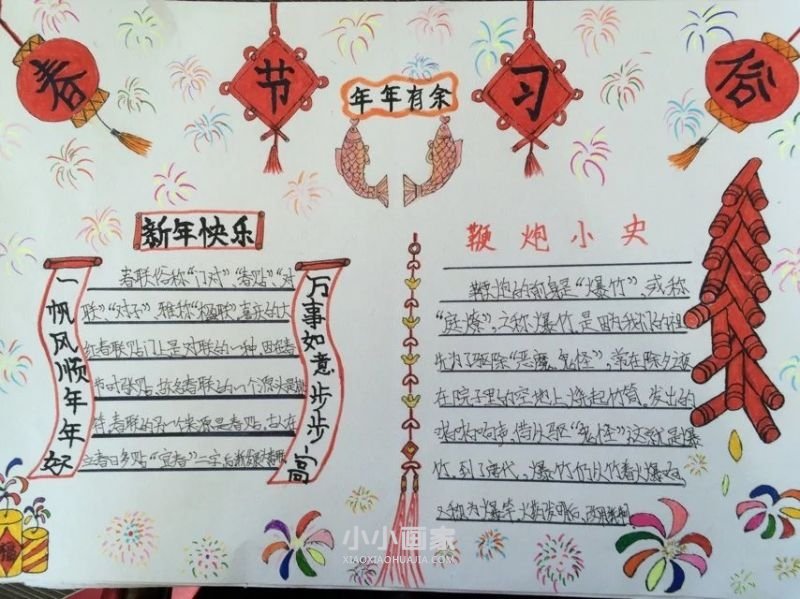 春节习俗
年年有余
新年快乐
一帆风顺年年好
万事如意步步高
春联俗称“门对”、“春贴”、“对
联”“对子”，雅称“楹联”，喜庆的大
红春联贴门上是对联的一种，因在春
节时张贴，故名春联的一个源头是桃
符春联的另一个来源是春贴，古人在
立春日多贴“宜春”二字，后渐
鞭炮小史
鞭炮的前身是“爆竹”，或称
“庭燎”，之称爆竹，是因为我们的祖
先为了驱除“恶魔、鬼怪”，常在除夕夜
在院子里的空地上，烧起竹筒，发出的
声，借以驱“鬼怪”这就是爆
竹，到了唐代，爆竹仍以竹着火爆
又称为“爆竿”，火药发明后，
福
小小画家
XIAOXIAOHUAJIA.COM